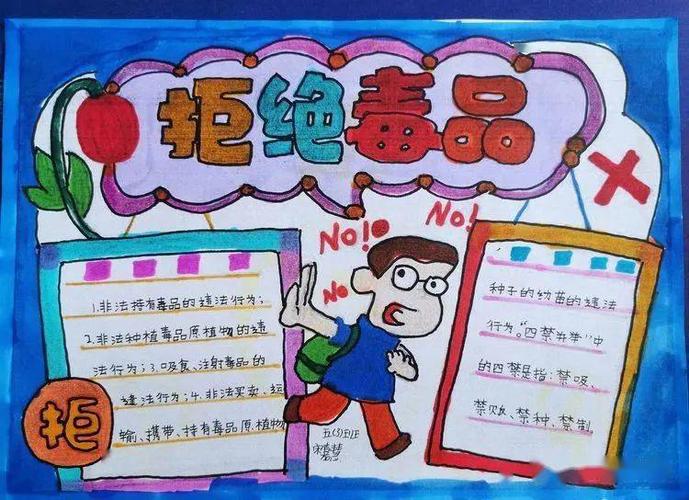 拒绝毒品
No!
No!
No
1.非法持有毒品的违法行为；
2.非法种植毒品原植物的违
法行为；3.吸食、注射毒品的
违法行为；4.非法买卖、运
输、携带、持有毒品原植物
种子的幼苗的违法
行为。“四禁并举”中
的四禁是指：禁吸、
禁贩、禁种、禁制
拒
五(3)班